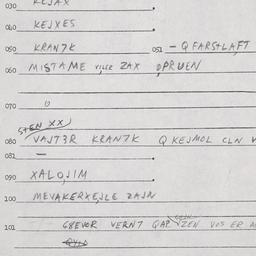 030 KEJAX
040 KEJXES
050 KRANTK 051 - Q FARSTLAFT
060 MISTAME VILLE ZAX OPRUEN
070
STEN XX)
080 VAJTER KRANTK Q KEJMOL CLN
081 —
090 XALOJIM
100 MEVAKERXEJLE ZAJN
101 GBEVOR VERNT QAP ZEN VOS ER